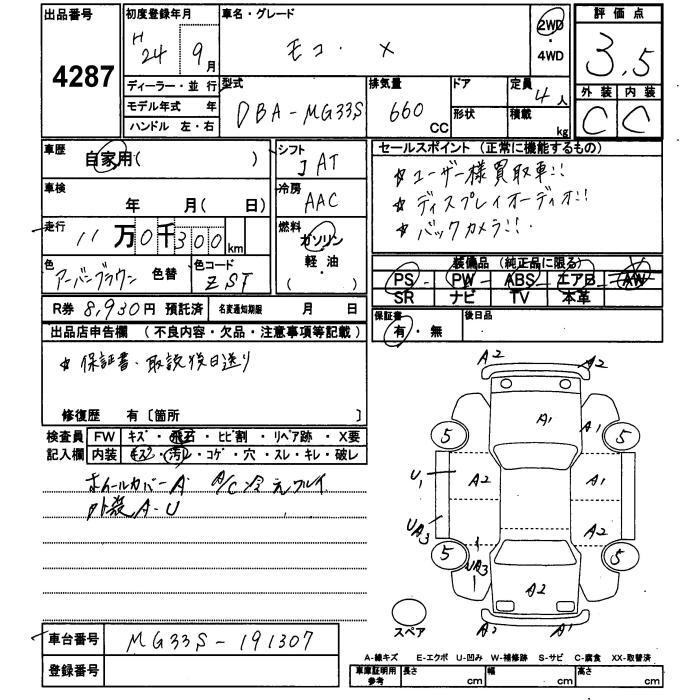 出品番号
4287
初度登録年月
H 24 9月
車名・グレード
モコ・ X
2WD
・
4WD
評価点
3.5
外装 内装
C C
ディーラー・並行
モデル年式 年
ハンドル 左・右
型式
DBA-MG33S
排気量
660
CC
ドア
形状
定員 4人
積載 kg
車歴
自家用( )
シフト
IAT
セールスポイント(正常に機能するもの)
☆ユーザー様買取車!!
☆ディスプレイオーディオ!!
☆バックカメラ!!
車検
年 月( 日)
冷房
AAC
走行
11万0千300km
燃料
ガソリン
軽・油
( )
色
アーバンブラウン 色替
色コード
ZST
装備品(純正品に限る)
PS PW ABS エアB AW
SR ナビ TV 本革
R券 8,930円 預託済 名変通知期限 月 日
保証書
有・無
後日品
出品店申告欄 (不良内容・欠品・注意事項等記載)
☆保証書、取説後日送り
修復歴 有〔箇所 〕
検査員
記入欄
FW キズ・飛石・ヒビ割・リペア跡・X要
内装 キズ・汚レ・コゲ・穴・スレ・キレ・破レ
ホイールカバーA A/C冷えワルイ
外装A-U
A2 A2
A1 A1
5 5
U1 A2 A1
UA3 A2
UA3
5 5
A2
スペア
車台番号 MG33S-191307
登録番号
A-線キズ E-エクボ U-凹み W-補修跡 S-サビ C-腐食 XX-取替済
車庫証明用
参考
長さ cm 幅 cm 高さ cm